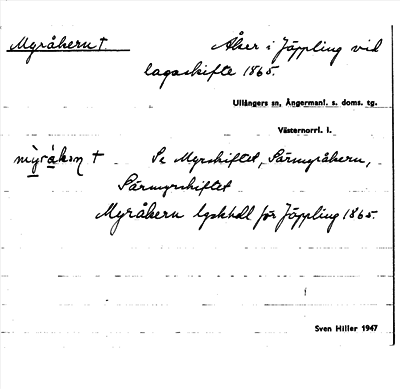 Myråkern † Åker i Jäppling vid
lagaskifte 1865.
Ullångers sn, Ångermanl. s. doms. tg.
Västernorrl. l.
mỳråkərn † Se Myrskiftet, Särmyråkern,
Särmyrskiftet
Myråkern lgskhdl för Jäppling 1865.
Sven Hiller 1947